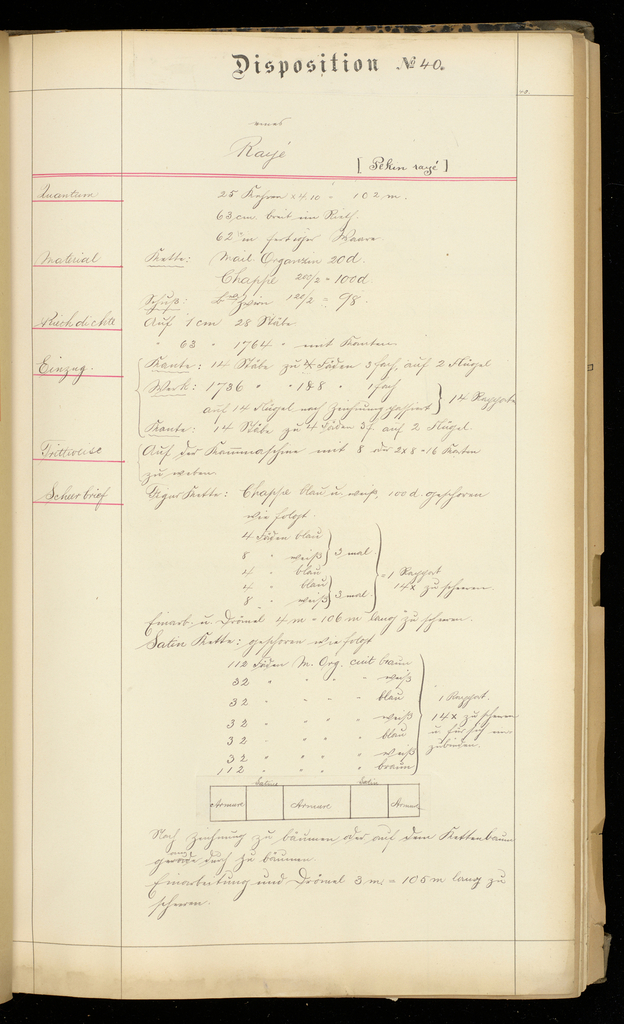 Disposition № 40.
40.
eines
Rayé
[ Pekin rayé ]
Quantum
25 Kahren × 4.10 = 102 m.
63 cm breit im Rieth.
62 cm fertiger Waare
Material
Kette: Mail. Organzin 20 d.
Chappe 200/2 = 100 d.
Schuß: Zwirn 120/2 = 98.
Riethdichte
Auf 1 cm 28 Stäbe
" 63 " 1764 " mit Kanten.
Einzug.
Kante: 14 Stäbe zu 4 Fäden 3 fach, auf 2 Flügel
Werk: 1736 " " 1 fach
auf 14 Flügel nach Zeichnung passiert } 14 Rapporte
Kante: 14 Stäbe zu 4 Fäden 3 f. auf 2 Flügel.
Trittweise
Auf der Kammaschine mit 8 oder 2 x 8 = 16 Karten
zu weben.
Scheerbrief
Kette: Chappe blau u. weiß, 100 d. geschoren
wie folgt:
4 Fäden blau
8 " weiß } 3 mal
4 " blau
4 " blau
8 " weiß } 3 mal.
= 1 Rapport
14 x zu scheeren.
Einarb. u. Drömel 4 m = 106 m lang zu scheeren.
Satin Kette: geschoren wie folgt
112 Fäden M. Org. cuit braun
32 " " " " weiß
32 " " " " blau
32 " " " " weiß
32 " " " " blau
32 " " " " weiß
112 " " " " braun
1 Rapport.
14 x zu scheeren
u. für sich
zubinden.
Satin Satin
Armure Armure Armure
Nach Zeichnung zu bäumen oder auf dem Kettenbaum
gerade durch zu bäumen
Einarbeitung und Drömel 3 m. = 105 m lang zu
scheeren.